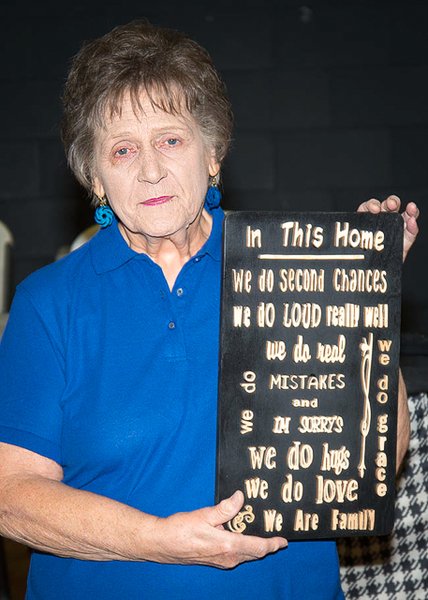 In This Home
we do second Chances
we do LOUD really well
we do real
we do
MISTAKES
and
I'M SORRY'S
we do grace
we do hugs
we do love
We Are Family